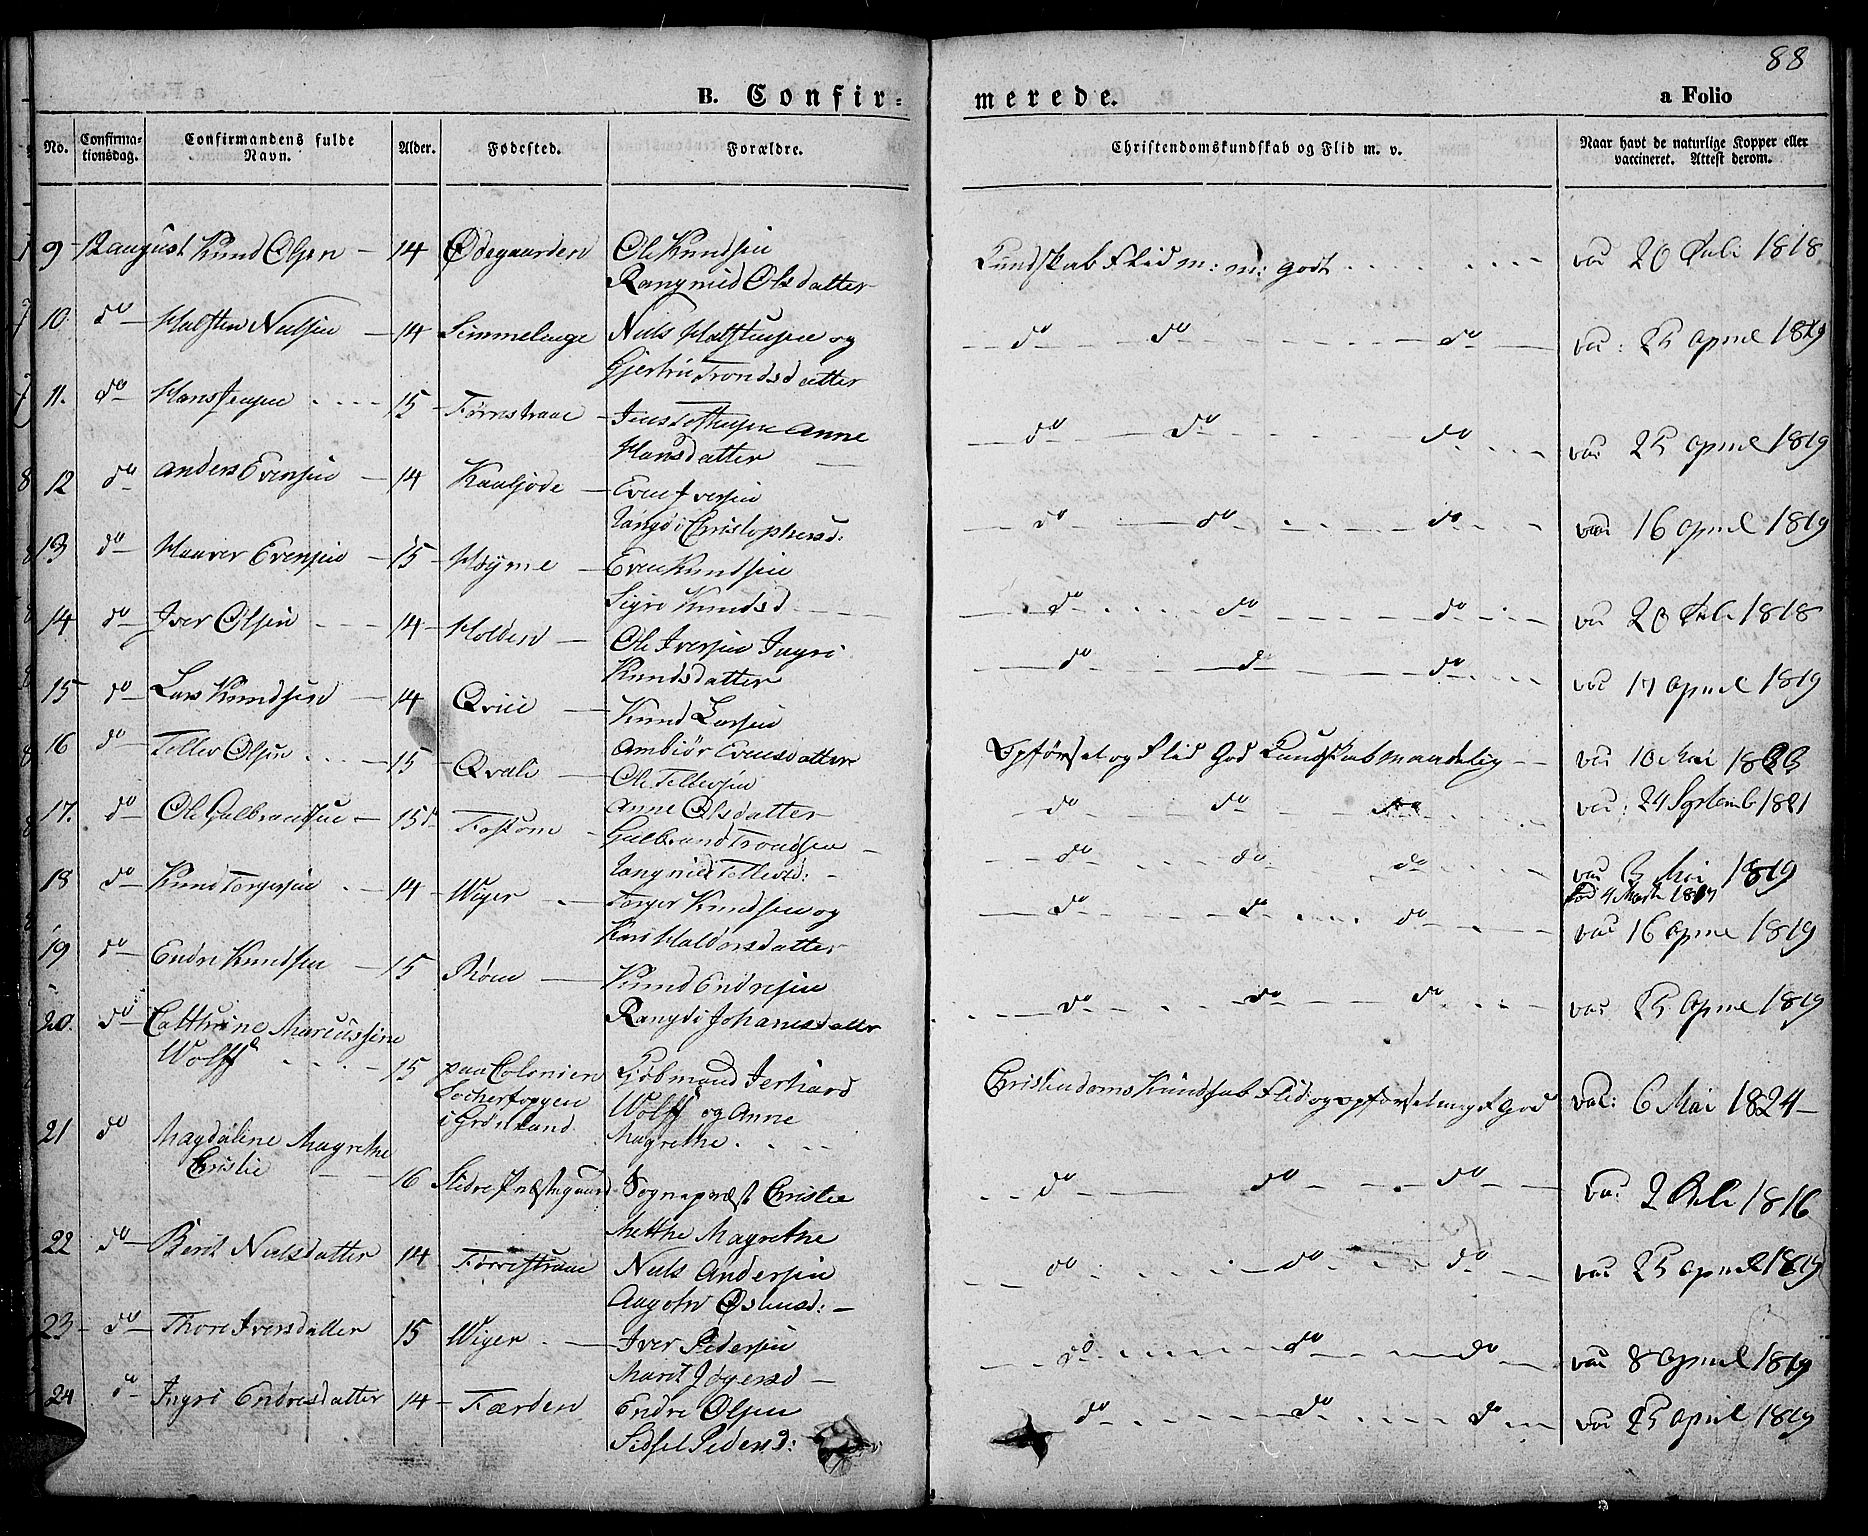 88
B. Confir=
merede.
a Folio
No.
Confirma-
tionsdag.
Confirmandens fulde
Navn.
Alder.
Fødested.
Forældre.
Christendomskundskab og Flid m. v.
Naar havt de naturlige Kopper eller
vaccineret. Attest derom.
9 august Knud Olsen 14 Ødegaarden Ole Knudsen Kundskab Flid m: m: godt vac 20 Juli 1818
Rangnied Olsdatter
10. do Halsten Nielsen 14 Semmelenge Niels Halstensen og do do do vac: 25 april 1819
Gjertru Trondsdatter
11. do Hans Jensen 15 Førrestraae Jens Anne do do do vac 25 april 1819
Hansdatter
12 do Anders Evensen 14 Even Iversen do do do vac 16 april 1819
Christophersd:
13 do Haaver Evensen 15 Høyme Even Knudsen do do do vac 20 Juli 1818
Sigri Knudsd
14 do Iver Olsen 14 Holden Ole Iversen Ingri do do do vac 17 april 1819
Knudsdatter
15 do Lars Knudsen 14 Qvile Knud Larsen Opførsel og Flid God Kundskab maadelig vac 10 Mai 1823
Ambiør Evensdatter
16 do Tellev Olsen 15 Qvale Ole Tellevsen do do do vac: 24 Septemb 1821
Anne Olsdatter
17. do Ole Gulbrandsen 15 Fossom Gulbrand Trondsen do do do vac 5 Mai 1819
Rangnied Tellevsd:
18 do Knud Torgersen 14 Wiger Torger Knudsen og do do do vac 16 april 1819
Kari Haldorsdatter
19 do Endre Knudsen 15 Røen Knud Endresen do do do vac 25 april 1819
Rangdi Johanesdatter
20. do Cathrine Marcussine 15 paa Colonien Kjøbmand Jerhard Christendoms Kundskab Flid og opførsel meget God vac: 6 Mai 1824
Wolff Wolff og Anne
i Grønland Magrethe
21 do Magdaline Magrethe 16 Slidre Præstegaard Sognepræst Christie do do do vac 2 Juli 1816
Christie Metthe Magrethe
22 do Berit Nielsdatter 14 Førrestraae Niels Andersen do do do vac 25 april 1819
Østensd:
23 do Thore Iversdatter 15 Wiger Iver Pedersen do do do vac 8 april 1819
Marit
24 do Ingri Endresdatter 14 Færden Endre Olsen do do do vac 25 april 1819
Sidsel Pedersd: